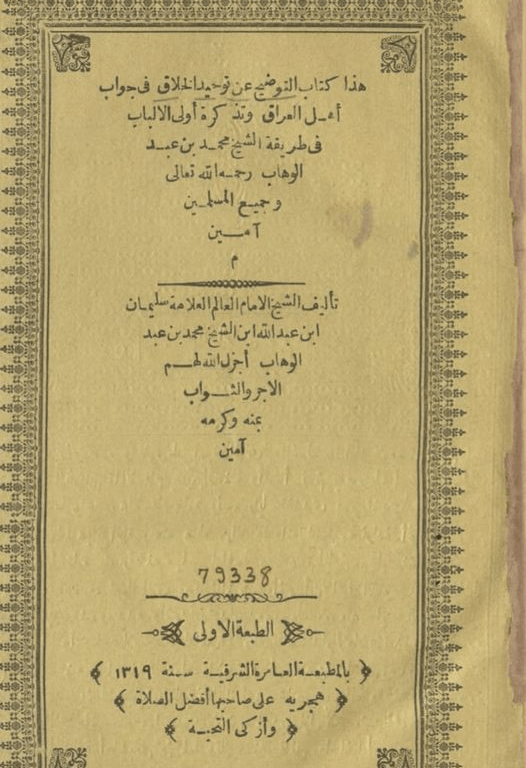 هذا كتاب التوضيح عن توحيد الخلاق فى جواب
أهل العراق وتذكرة أولى الالباب
فى طريقة الشيخ محمد بن عبد
الوهاب رحمه الله تعالى
وجميع المسلمين
آمين
م
تأليف الشيخ الامام العالم العلامة سليمان
ابن عبد الله ابن الشيخ محمد بن عبد
الوهاب أجزل الله لهم
الاجر والثواب
بمنه وكرمه
آمين
79338
الطبعة الاولى
﴿ بالمطبعة العامرة الشرفية سنة ١٣١٩ ﴾
﴿ هجريه على صاحبها أفضل الصلاة ﴾
﴿ وأزكى التحية ﴾